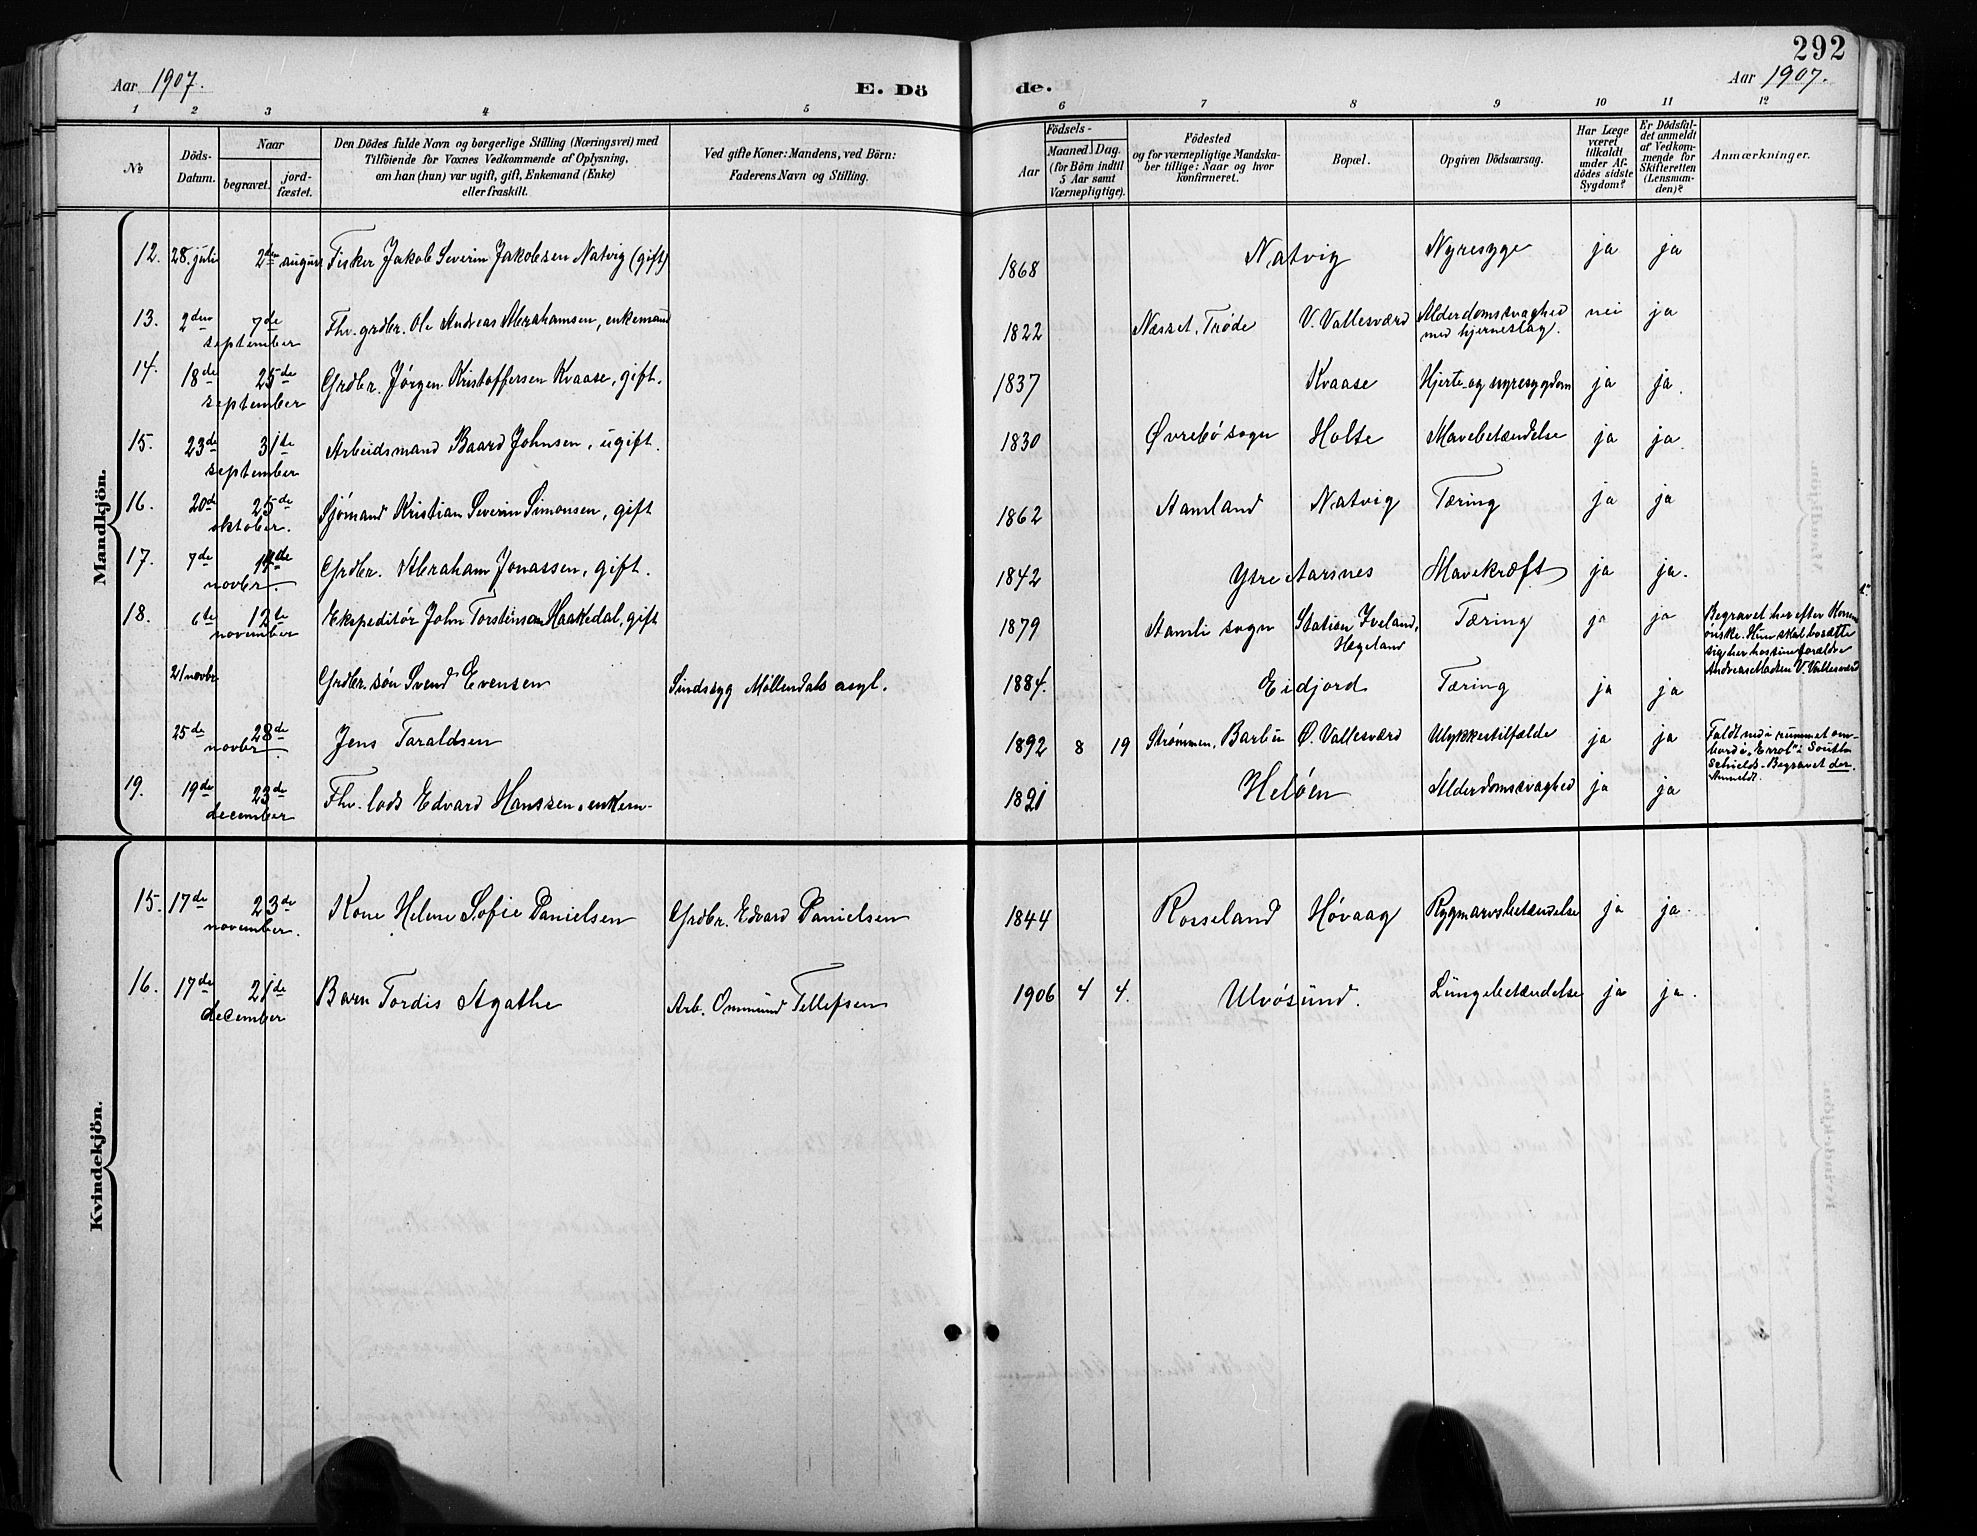 292
Aar 1907.
E. Dö
de.
Aar 1907.
1 2 3 4 5 6 7 8 9 10 11 12
No
Döds-
Datum.
Naar
begravet.
jord-
fæstet.
Den Dödes fulde Navn og borgerlige Stilling (Næringsvei) med
Tilföiende for Voxnes Vedkommende af Oplysning,
om han (hun) var ugift, gift, Enkemand (Enke)
eller fraskilt.
Ved gifte Koner: Mandens, ved Börn:
Faderens Navn og Stilling.
Födsels-
Aar
Maaned. Dag.
(for Börn indtil
5 Aar samt
Værnepligtige).
Födested
og for værnepligtige Mandska-
ber tillige: Naar og hvor
konfirmeret.
Bopæl.
Opgiven Dödsaarsag.
Har Læge
været
tilkaldt
under Af-
dödes sidste
Sygdom?
Er Dödsfal-
det anmeldt
af Vedkom-
mende for
Skifteretten
(Lensman-
den)?
Anmærkninger.
Mandkjön.
12. 28. juli 2den august Fisker Jakob Severin Jakobsen Natvig (gift) 1868 Natvig Nyresyge ja ja
13. 2den 7de september Fhv. grdbr. Ole Andreas Abrahamsen, enkemand 1822 Næsset, Trøde V. Vallesværd Alderdomssvaghed med hjerneslag. nei ja
14. 18de 25de september Grdbr. Jørgen Kristoffersen Kvaase, gift. 1837 Kvaase Hjerte- og nyresygdom ja ja.
15. 23de 31de september Arbeidsmand Baard Johnsen, ugift. 1830 Øvrebø sogn Holte Mavebetændelse ja ja.
16. 20de 25de oktober. Sjømand Kristian Severin Simonsen, gift 1862 Aamland Natvig Tæring ja ja
17. 7de 14de novbr. Grdbr. Abraham Jonassen, gift. 1842 Ytre Aarsnes Mavekræft ja ja.
18. 6te 12te november Ekspeditør John Torstenson Haakedal, gift 1879 Aamli sogn Station Iveland, Hægeland Tæring ja ja Begravet her efter Konens
ønske. Hun skal bosætte
sig her hos sine forældre
Andreas Madsen V. Vallesværd
21 novbr. Grdbr. søn Svend Evensen Sindssyg Møllendals asyl. 1884. Eidjord Tæring ja ja
25de 28de novbr. Jens Taraldsen 1892 8 19 Strømmen, Barbu Ø. Vallesværd Ulykkestilfælde ja ja Faldt ned i rummet om-
bord i "Errol" i South
Schields. Begravet der.
Anmeldt.
19. 19de 23de december Fhv. lods Edvard Hanssen, enkem. 1821 Heløen Alderdomssvaghed ja ja
Kvindekjön.
15. 17de 23de november. Kone Helene Sofie Danielsen Grdbr. Edvard Danielsen 1844 Rosseland Høvaag Rygmarvsbetændelse ja ja.
16. 17de 21de december Barn Tordis Agathe Arb. Ommund Tellefsen 1906 4 4. Ulvøsund. Lungebetændelse ja ja.